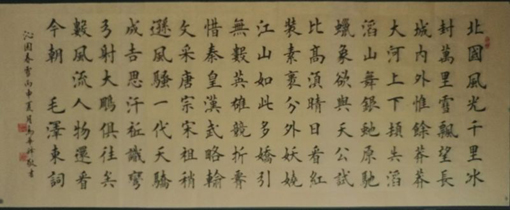 北國風光千里冰
封萬里雪飄望長
城內外惟餘莽莽
大河上下頓失滔
滔山舞銀蛇原馳
蠟象欲與天公試
比高須晴日看紅
裝素裹分外妖嬈
江山如此多嬌引
無數英雄競折腰
惜秦皇漢武略輸
文采唐宗宋祖稍
遜風騷一代天驕
成吉思汗祇識彎
弓射大鵰俱往矣
數風流人物還看
今朝 毛澤東詞
沁園春雪丙申夏月 書